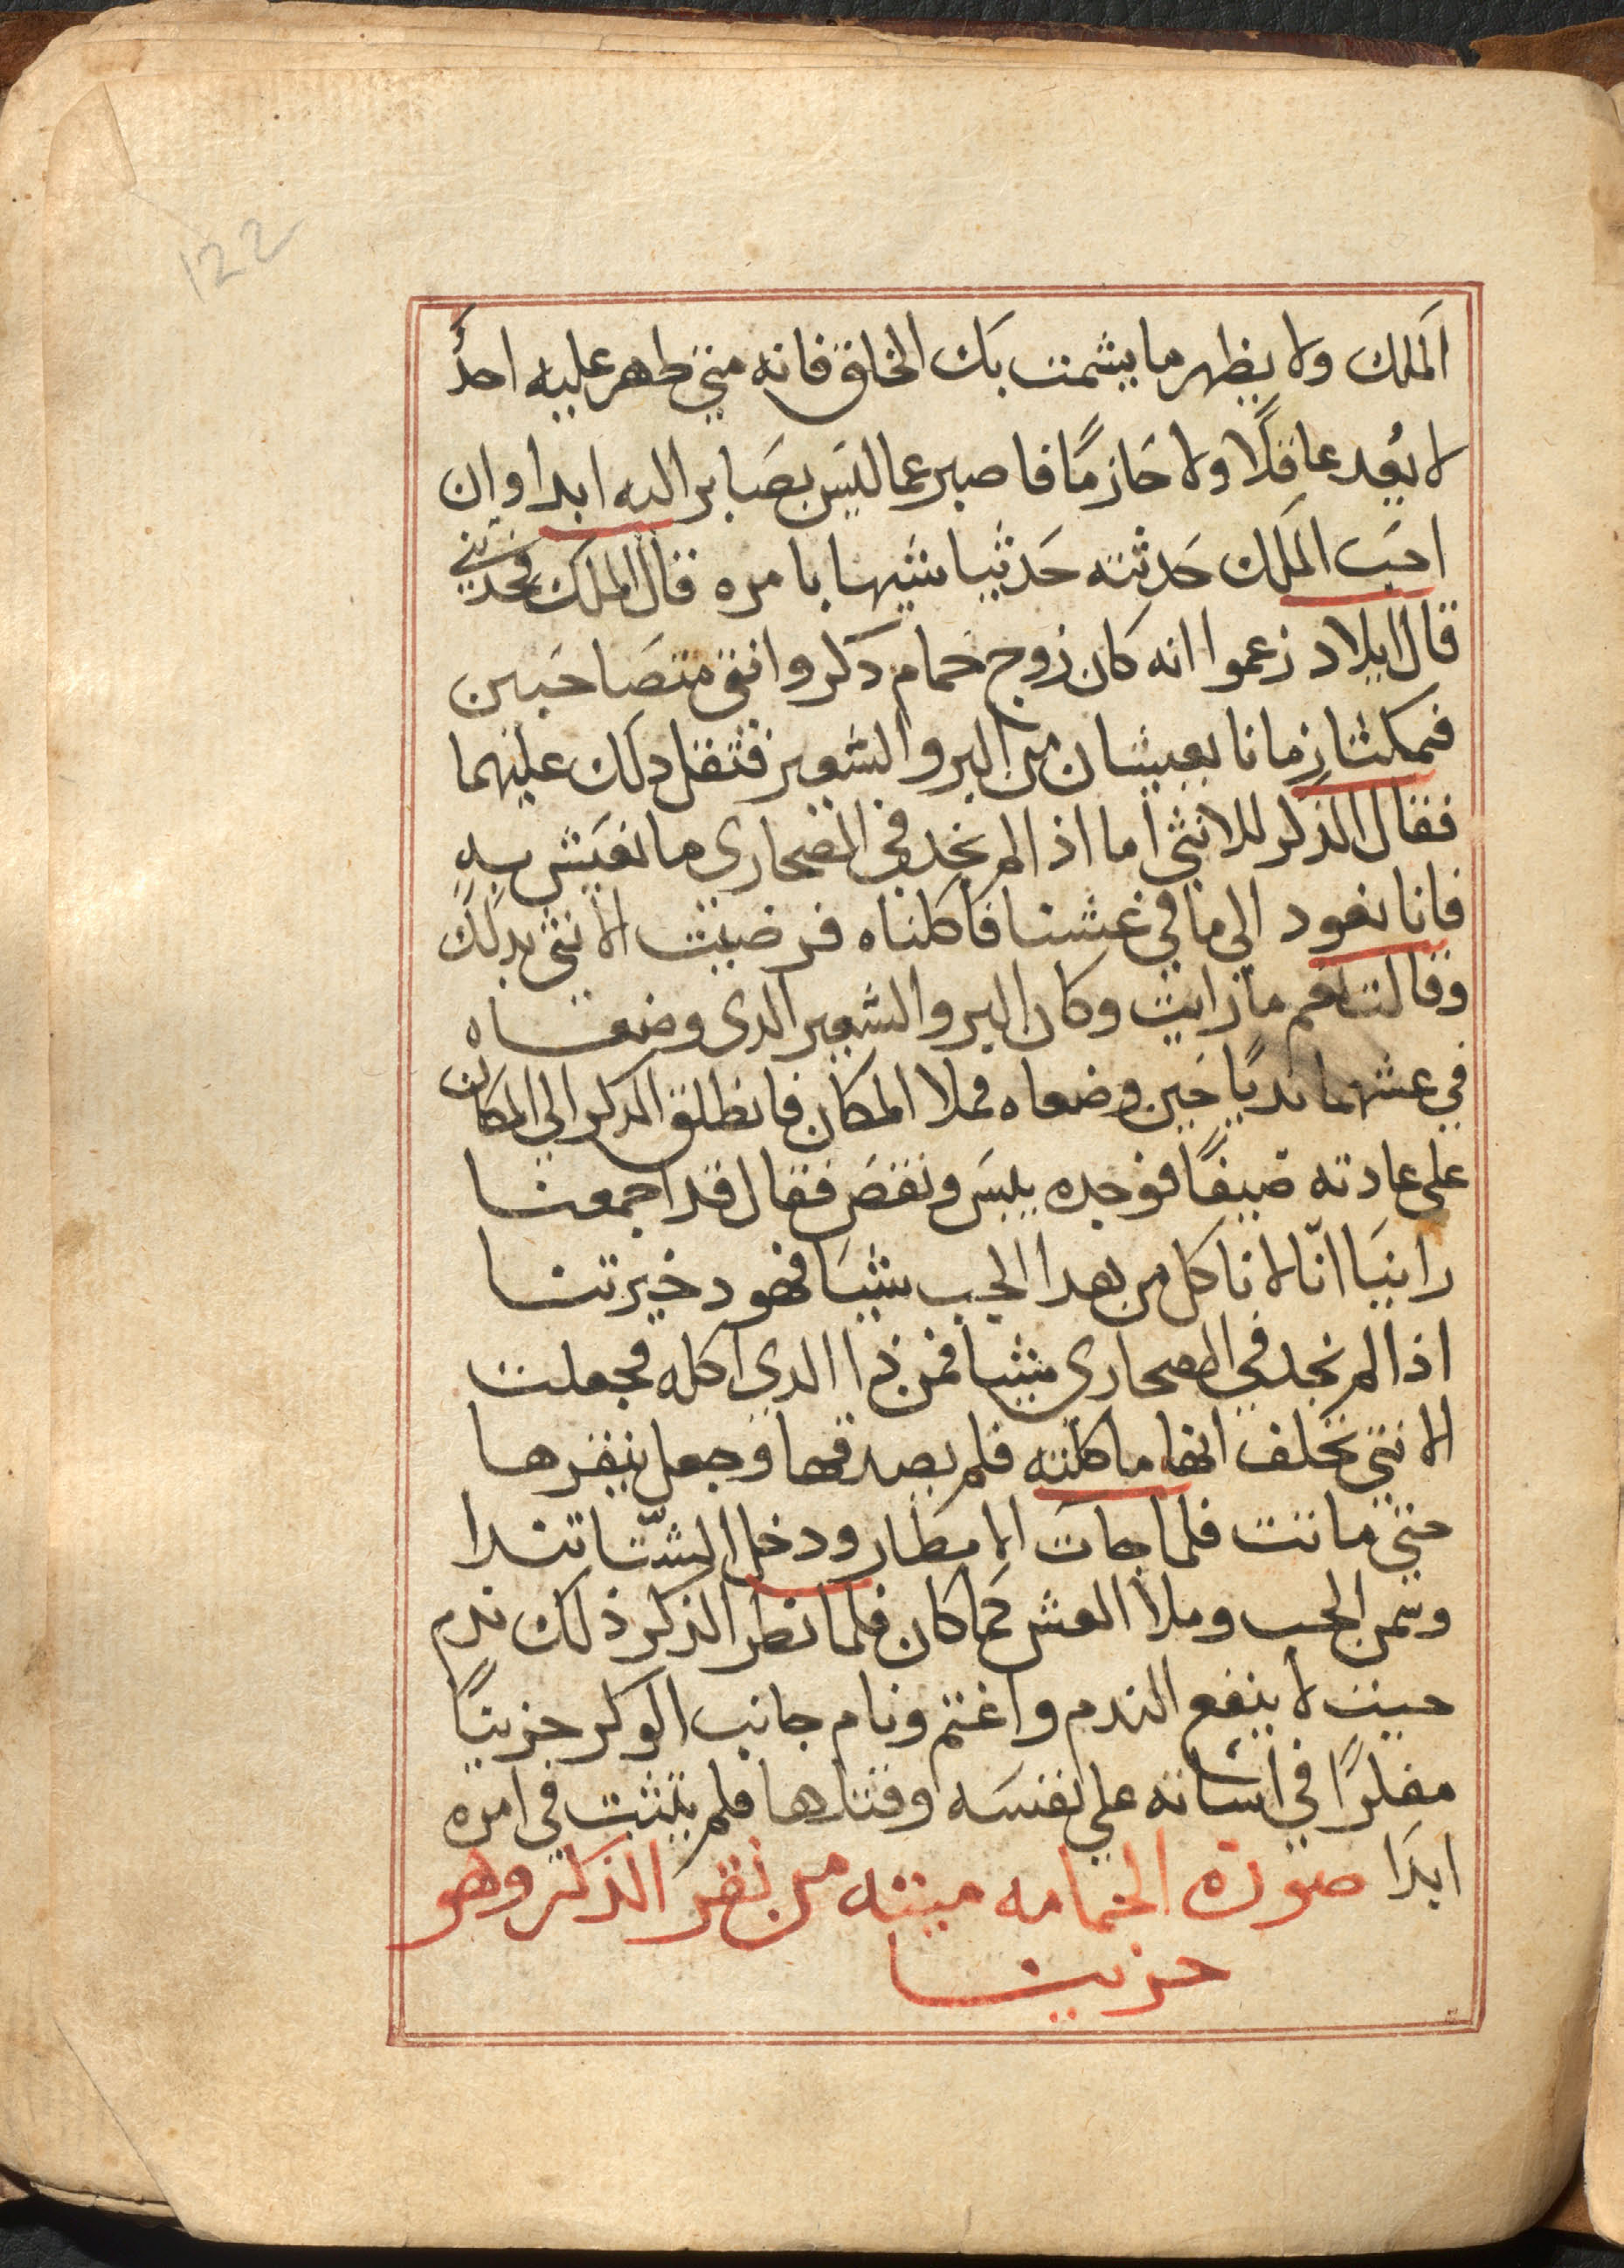 122
الملك ولا يظهر ما يشمت بك الخلق فانه متي طهر عليه احدُ
لا يُعد عاقلًا ولا حَازمًا فاصبر عما ليس بصَابر اليه ابدا وان
احبَ الملك حَدثته حَدثيا شيها بامره قال الملك فحدثني
قال ايلاد زعموا انه كان زوج حمام دكر وانثي متصَاحبين
فمكثا زمانا يعيشان من البر والشعير فثقل دلك عليهما
فقال الذكر للانثي اما اذا لم نجد في الصحاري ما نعيش به
فانا نعود الي ما في عشنا فاكلناه فرضيت الانثي بدلك
وقالت نعم ما رايت وكان البر والشعير الدى وضعاه
في عشهما نديًا حين وضعاه فملا المكان فانطلق الدكر الي المكان
علي عادته صيفًا فوجده يبس ونقصَ فقال قد اجمعنا
راينَا انّا لا ناكل من هدا الحب شيَا فهو دخيرتنا
اذا لم نجد في الصحارى شيا فمن ذا الدي اكله فجعلت
الانثي تحلف انها ما اكلته فلم يصدقها وجعل ينقرها
حتي ماتت فلما جات الامطار ودخل الشّتا تندا
وسمن الحب وملا العش كما كان فلما نطر الذكر ذلك ندم
حيث لا ينفع الندم واغتم ونام جانب الوكر حزينًا
مفكرًا في اسَاته علي نفسَه وقتلها فلم يتثبت في امره
ابدَا صورة الحمامه ميته من نقر الذكر وهو
حزينا